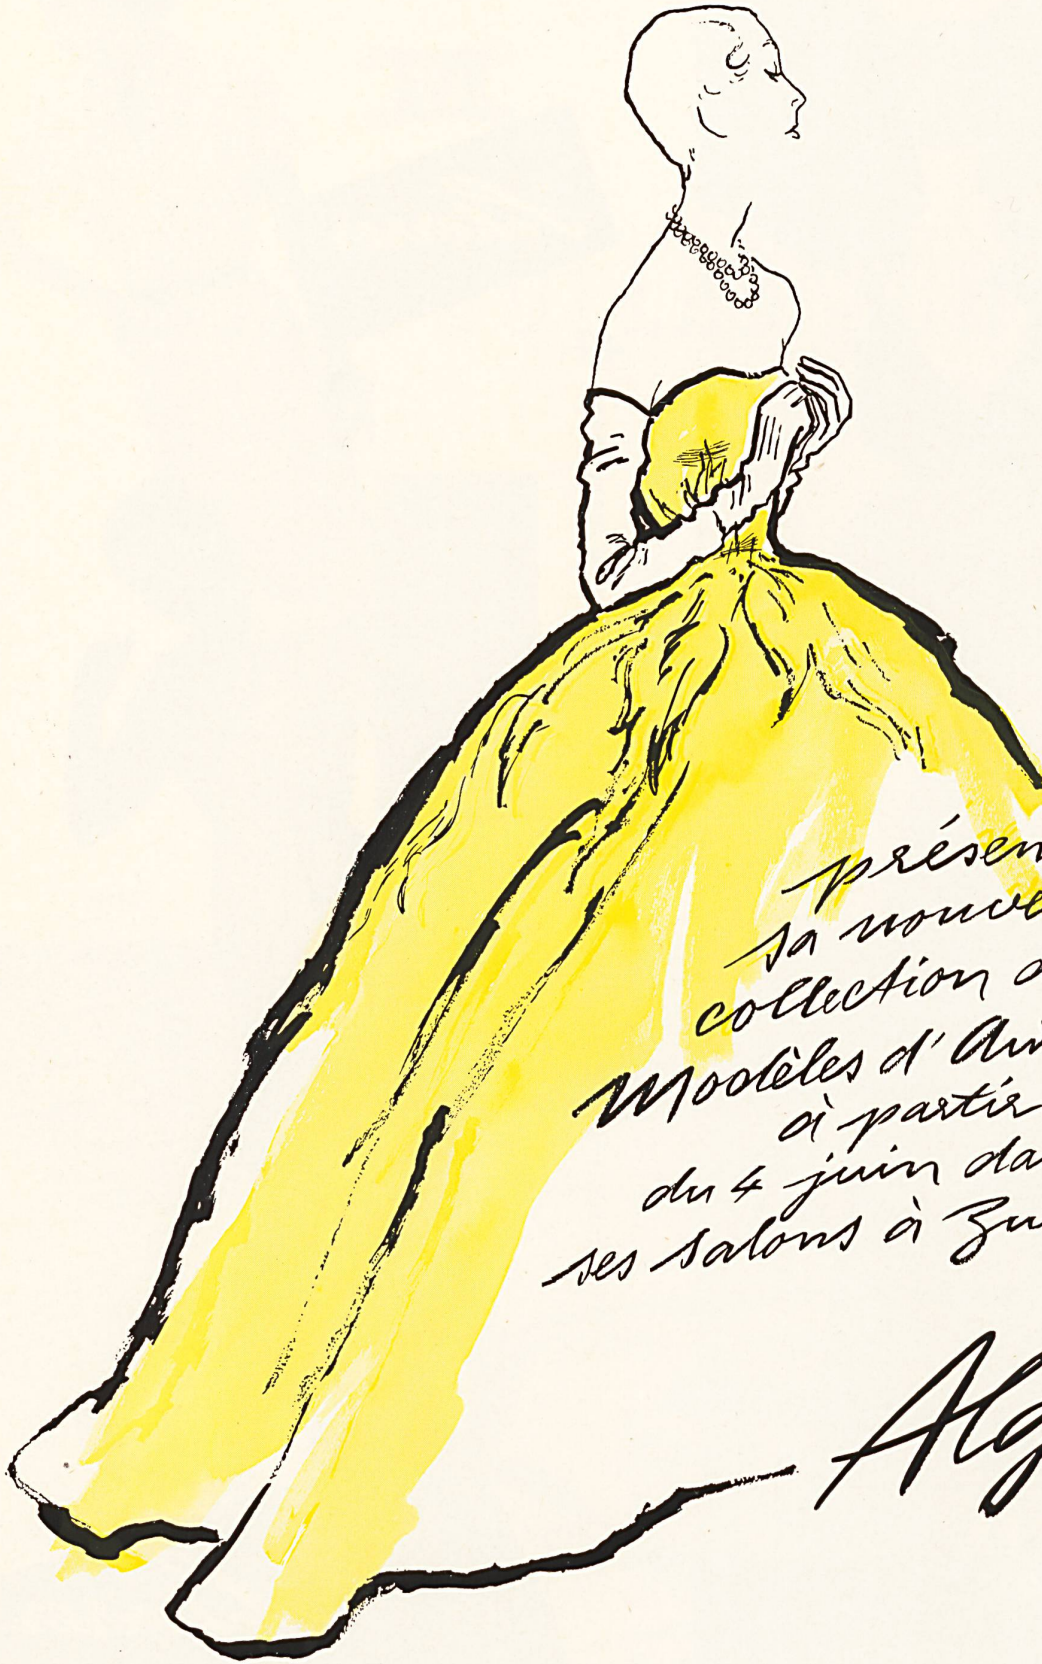 présen
sa nouve
collection d
Modèles d'Au
à partir
du 4 juin da
ses salons à Zu
Alg